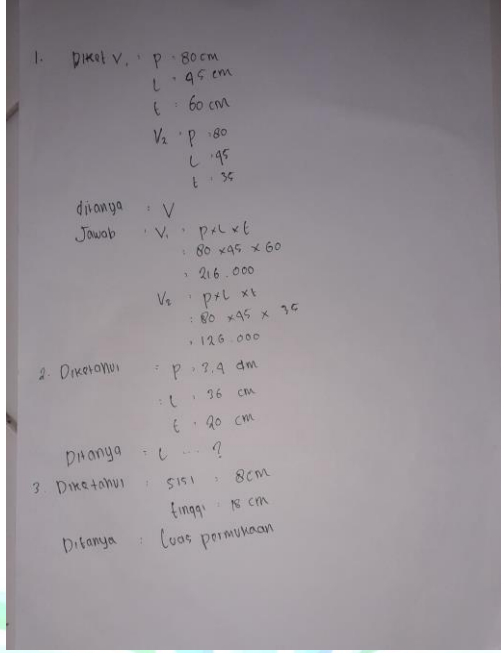 1. Diket V₁ : p : 80 cm
L : 45 cm
t : 60 cm
V₂ : p : 80
L : 45
t : 35
ditanya : V
Jawab : V₁ : p×L×t
: 80 ×45 × 60
: 216.000
V₂ : p×L ×t
: 80 ×45 × 35
: 126.000
2. Diketahui : p : 2,4 dm
: l : 36 cm
t : 20 cm
Ditanya : L ... ?
3. Diketahui : sisi : 8cm
tinggi : 18 cm
Ditanya : Luas permukaan